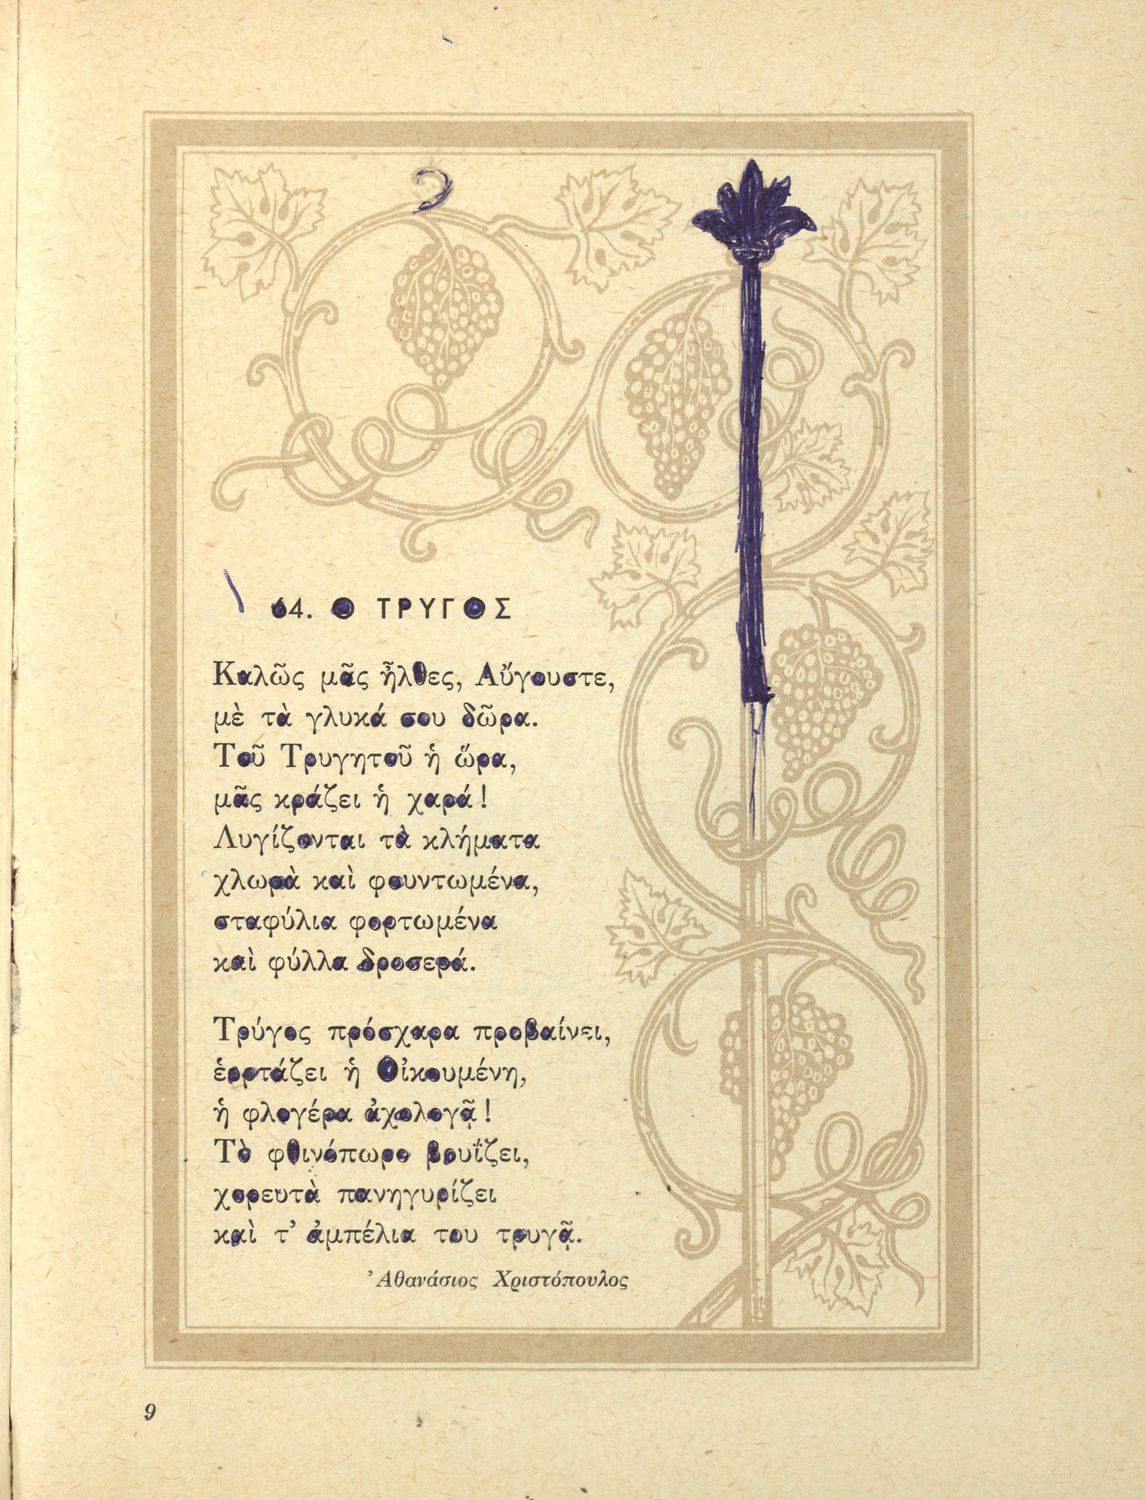 64. Ο ΤΡΥΓΟΣ
Καλῶς μᾶς ἦλθες, Αὔγουστε,
μὲ τὰ γλυκά σου δῶρα.
Τοῦ Τρυγητοῦ ἡ ὥρα,
μᾶς κράζει ἡ χαρά!
Λυγίζονται τὰ κλήματα
χλωρὰ καὶ φουντωμένα,
σταφύλια φορτωμένα
καὶ φύλλα δροσερά.
Τρύγος πρόσχαρα προβαίνει,
ἑορτάζει ἡ Οἰκουμένη,
ἡ φλογέρα ἀχολογᾷ!
Τὸ φθινόπωρο βουΐζει,
χορευτὰ πανηγυρίζει
καὶ τ' ἀμπέλια του τρυγᾷ.
Ἀθανάσιος Χριστόπουλος
9